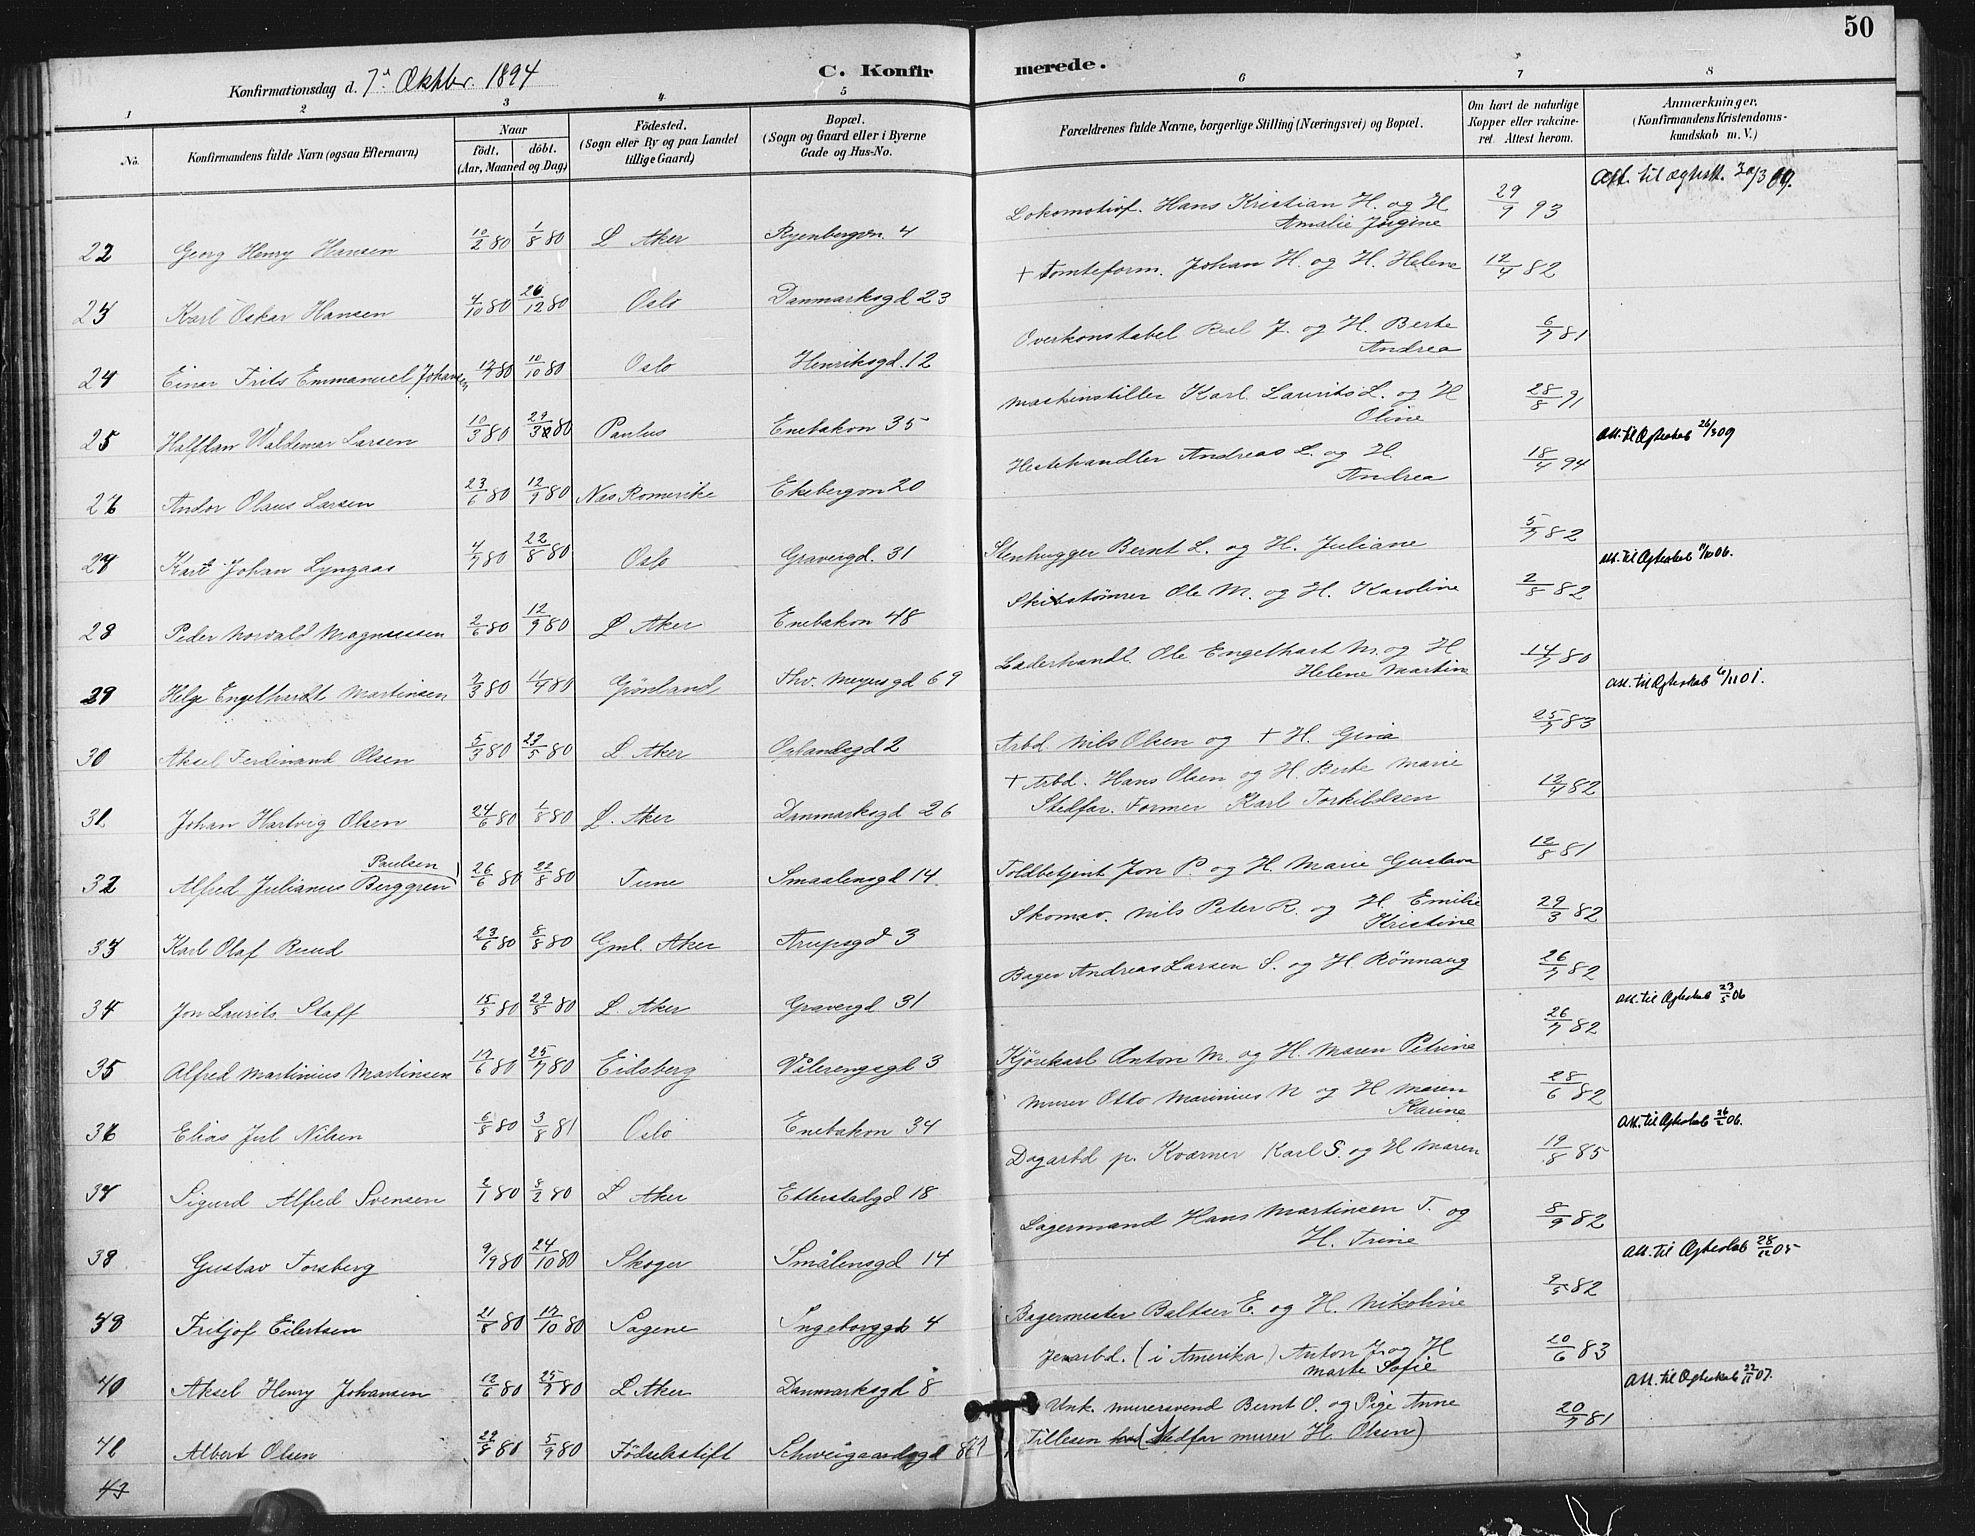 50
Konfirmationsdag d. 7de Oktbr. 1894
C. Konfirmerede.
1 2 3 4 5 6 7 8
No.
Konfirmandens fulde Navn (ogsaa Efternavn)
Naar
födt. döbt.
(Aar, Maaned og Dag)
Födested.
(Sogn eller By og paa Landet
tillige Gaard)
Bopæl.
(Sogn og Gaard eller i Byerne
Gade og Hus-No.
Forældrenes fulde Navne, borgerlige Stilling (Næringsvei) og Bopæl.
Om havt de naturlige
Kopper eller vakcine-
ret. Attest herom.
Anmærkninger.
(Konfirmandens Kristendoms-
kundskab m. V.)
22 Georg Henry Hansen 10/2 80 1/8 80 L Aker Ryenbergvn. 4 Lokomotivf. Hans Kristian H. og H Amalie Jørgine 29/9 93 Att. til ægtesk.
23 Karl Oskar Hansen 4/10 80 26/12 80 Oslo Danmarksgd 23 + Tomteform. Johan H. og H. Helene 12/4 82
24 Einar Frits Emmanuel Johansen 17/7 80 10/10 80 Oslo Henriksgd. 12 Overkonstabel J. og H. Berte Andrea 6/7 81
25 Halfdan Waldemar Larsen 10/3 80 Paulus Enebakvn 35 Maskinstiller Karl Laurits L. og H Oline 28/8 91
26 Andor Olaus Larsen 23/6 80 12/9 80 Nes Romerike Ekebergvn 20 Hestehandler Andreas L. og H. Andrea 18/4 94 Att. til Ægteskab 26/3 09
27 Karl Johan Lyngaas 4/7 80 22/8 80 Oslo Gravergd. 31 Stenhugger Bernt L. og H. Juliane 5/7 82
28 Peder Norvald Magnussen 2/6 80 12/9 80 L Aker Enebakvn 48 Skibstømrer Ole M. og H. Karoline 2/8 82 Att. til Ægteskab 11/10 06.
29 Helge Engelhardt Martinsen 2/3 80 Grønland Thv. Meyersgd 69 Læderhandl. Ole Engelhart M. og H Helene Martin 14/7 80
30 Aksel Ferdinand Olsen 5/3 80 23/5 80 L Aker Oplandsgd 2 Arbd Nils Olsen og + H. Gina 25/7 83 Att. til Ægteskab 6/11 01.
31 Johan Hartvig Olsen 24/6 80 1/8 80 L. Aker Danmarksgd 26 + Arbd. Hans Olsen og H. Berte Marie
Stedfar. Former Karl Torkildsen 12/4 82
32 Alfred Julianus Paulsen Berggren 26/6 80 22/8 80 Tune Smaalensgd 14. Toldbetjent Jon P. og H. Marie Gustava 12/8 81
33 Karl Olaf Ruud 23/6 80 8/8 80 Gml. Aker Arupsgd 3 Skomav. Nils Peter R. og H. Emilie Kristine 29/3 82
34 Jon Laurits Staff 15/5 80 29/8 80 L. Aker Gravergd 31 Bager Andreas Larsen S. og H. Rönnaug 26/7 82
35 Alfred Martinius Martinsen 17/6 80 25/7 80 Eidsberg Vålerengsgd 3 Kjørekarl Anton M. og H. Maren Petrine 26/7 82 Att. til Ægteskab 23/5 06
36 Elias Jul Nilsen 6/8 80 3/8 81 Oslo Enebakvn 34 Murer Otto Marinius N og H Maren Karine 28/6 82
37 Sigurd Alfred Svensen 2/1 80 8/2 80 L Aker Etterstadgd 18 Dagarbd p. Kværner Karl S. og H Maren 19/8 85 Att. til Ægteskab 26/2 06.
38 Gustav Torsberg 9/9 80 24/10 80 Skoger Smålensgd 14 Lagermand Hans Martinsen T. og H. Trine 8/9 82
39 Fritjof Eilertsen 21/8 80 17/10 80 Sagene Ingeborggd 4 Bagermester Baltser E. og H. Nikoline 9/5 82 Att. til Ægteskab 28/12 05
40 Aksel Henry Johansen 12/6 80 25/7 80 L Aker Danmarksgd 8 Jernarbd. (i Amerika) Anton J. og H Marte Sofie 20/6 83
41 Albert Olsen 22/8 80 5/9 80 Födselsstift Schweigaardsgd Unk. murersvend Bernt O. og Pige Anne
Tillesen (Stedfar murer H. Olsen) 20/7 81 Att. til Ægteskab 22/11 07.
43